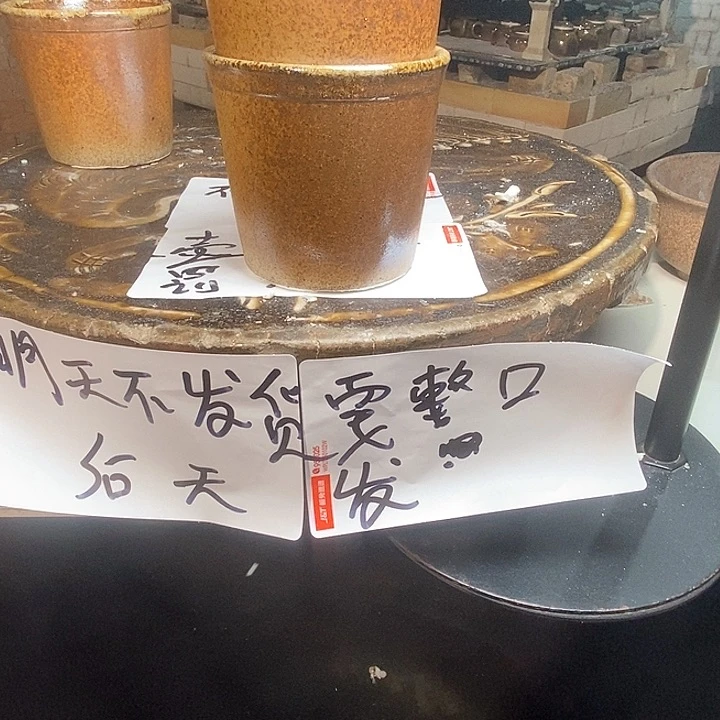 不
壶
明天不发货 要整口
后天 发
J&T 极兔速递